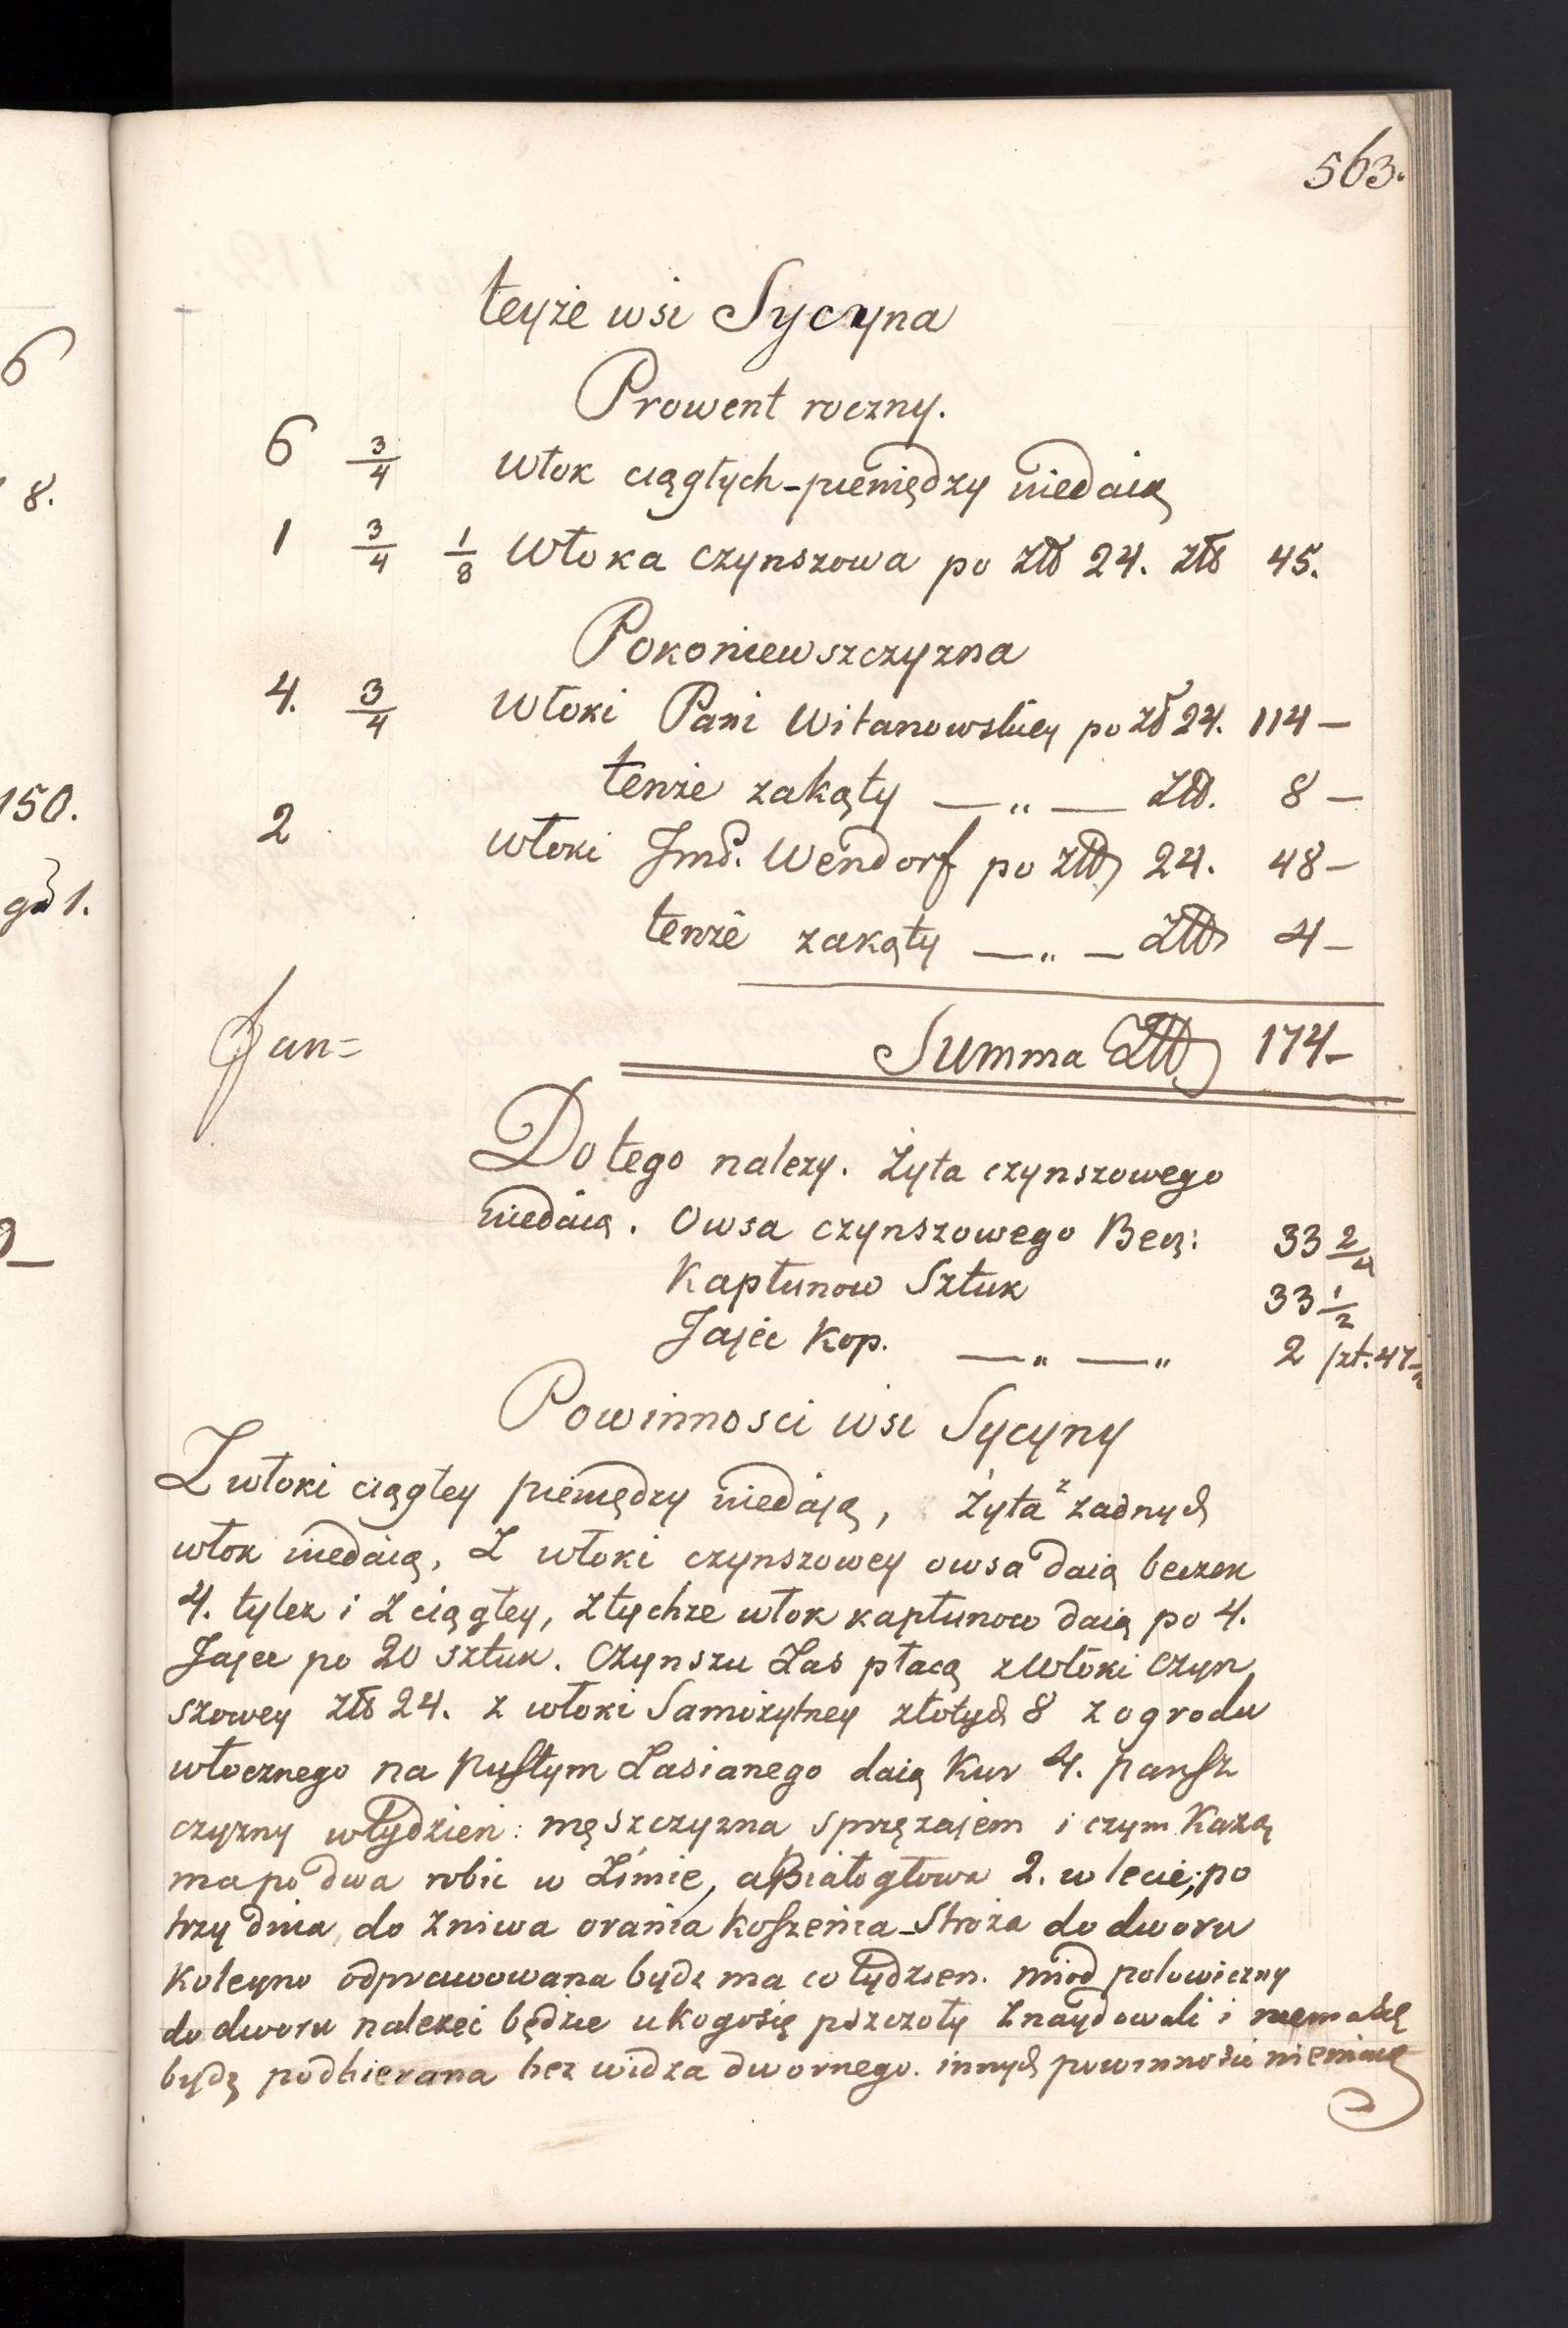 563.
teyże wsi Sycyna
Prowent roczny.
6 3/4 włok ciągłych - pieniędzy niedaią
1 3/4 1/8 Włoka czynszowa po złł 24. złł 45.
Pokoniewszczyzna
4. 3/4 włoki Pani Witanowskiey po zł 24. 114 —
tenże zakąty — „ — złł. 8 —
2 włoki Jmć. Wendorf po złł 24. 48 —
tenże zakąty — „ — złł 4 —
Summa Złł 174 —
Jan =
Do tego nalezy. Żyta czynszowego
niedaią. Owsa czynszowego Becz: 33 2/4
Kapłunow Sztuk 33 1/2
Jajec Kop. — „ — „ 2 szt. 47
Powinnosci wsi Sycyny
Z włoki ciągłey pieniędzy niedają, Żyta z zadnych
włok niedaią, Z włoki czynszowey owsa daią beczek
4. tylez i z ciągłey, z tychze włok kapłunow daią po 4.
Jajec po 20 sztuk. Czynszu Zas płacą z włoki czyn
szowey złł 24. z włoki Samożytney złotych 8 z ogrodu
włocznego na pustym Zasianego daią Kur 4. pansz
czyzny w tydzien: męszczyzna sprzężajem i czym Każą
ma po dwa robic w Zimie, a Białogłowa 2. w lecie; po
trzy dnia do żniwa orania koszenia - Stroża do dworu
koleyno odprawowana bydz ma co tydzien. miod połowiczny
do dworu nalezeć będzie u kogo się pszczoły znaydowali i niema
bydz podbierana bez widza dwornego. innych powinnosci niemaią
6
8.
150.
1.